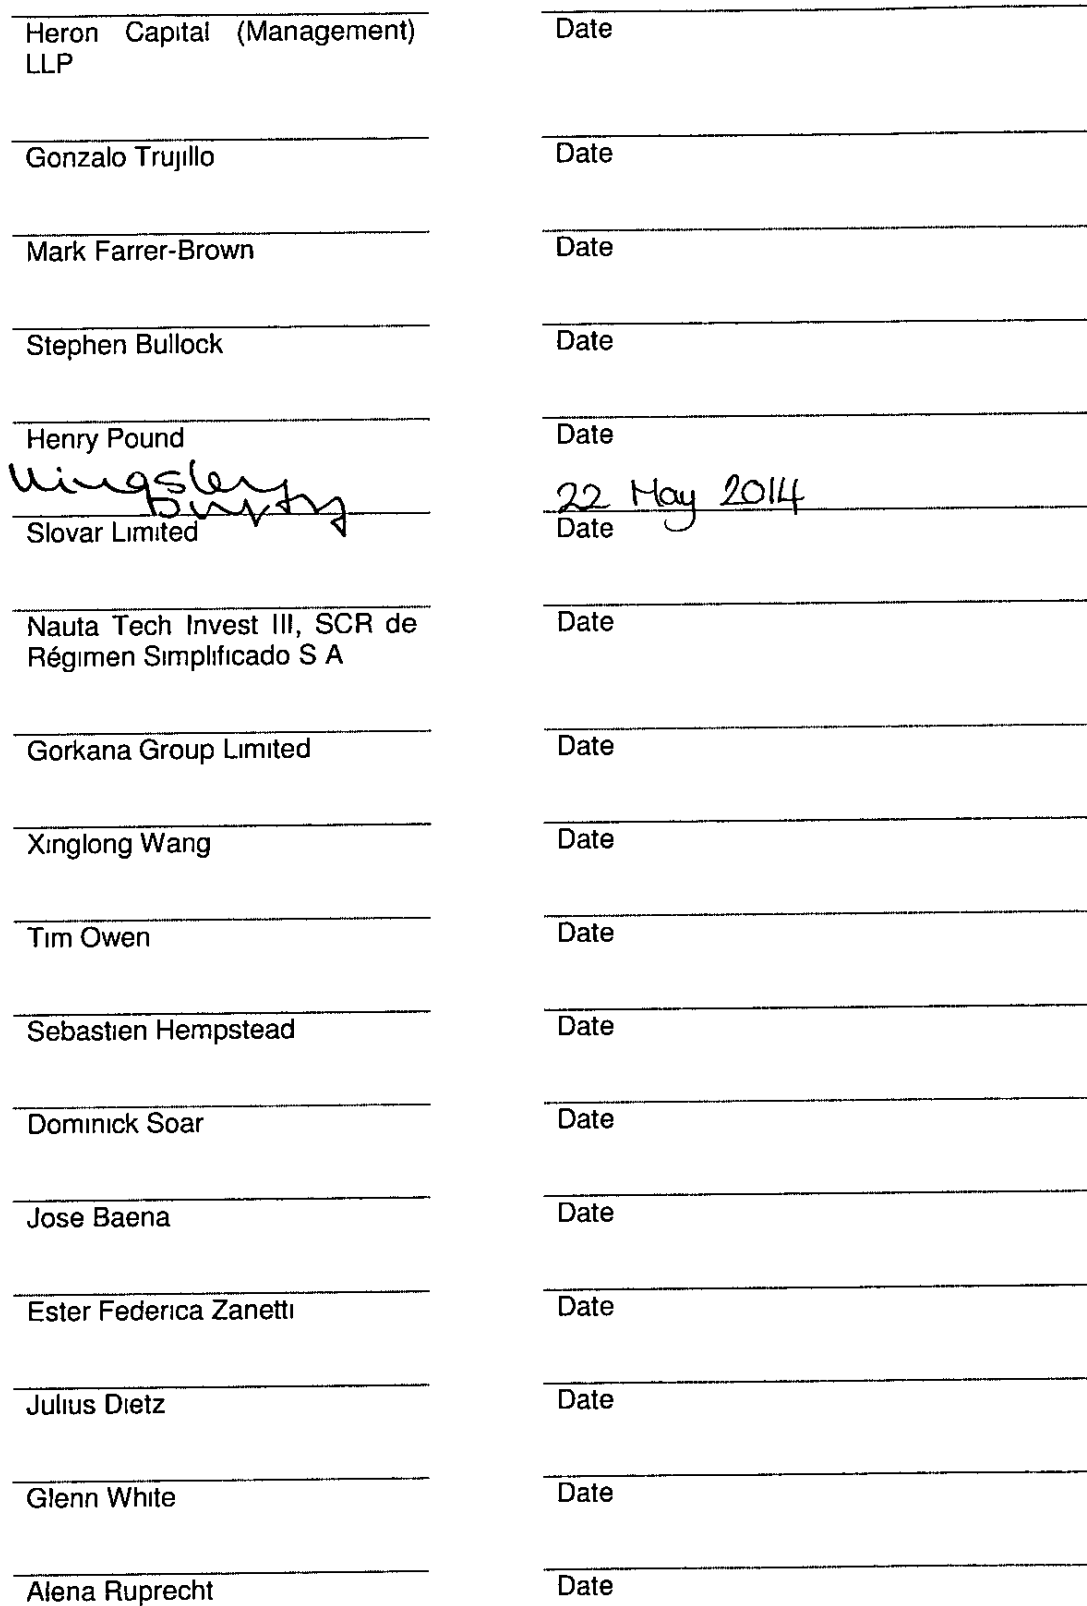 Heron Capital (Management) Date
LLP
Gonzalo Trujillo Date
Mark Farrer-Brown Date
Stephen Bullock Date
Henry Pound Date
Kingsley
Duffy 22 May 2014
Slovar Limited Date
Nauta Tech Invest III, SCR de Date
Régimen Simplificado S A
Gorkana Group Limited Date
Xinglong Wang Date
Tim Owen Date
Sebastien Hempstead Date
Dominick Soar Date
Jose Baena Date
Ester Federica Zanetti Date
Julius Dietz Date
Glenn White Date
Alena Ruprecht Date